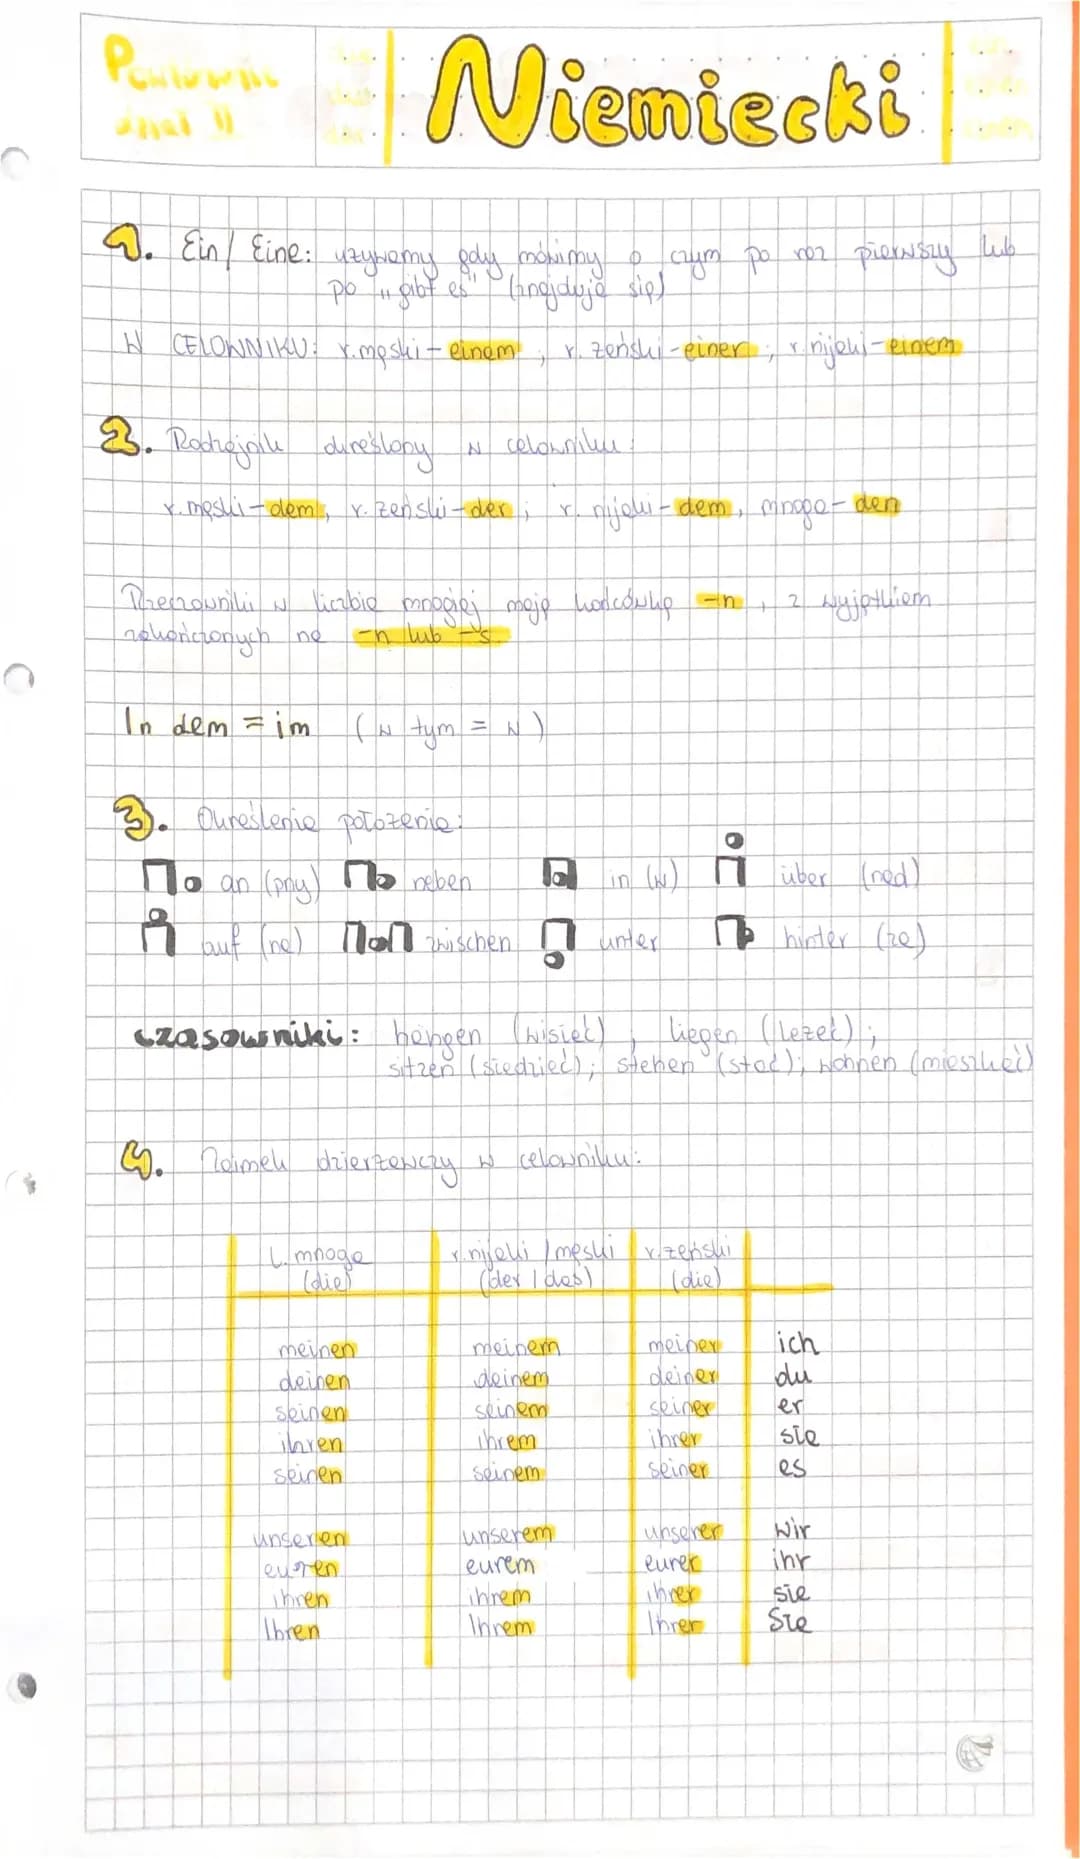 Niemiecki
1. Ein/ Eine: używamy gdy mówimy o czym po raz pierwszy lub
po "gibt es" (znajduję się)
W CELOWNIKU: r.męski - einem, r. żeński - einer; r. nijaki - einem
2. Rodzajnik określony w celowniku:
r. męski - dem, r. żeński - der; r. nijaki - dem, mnoga - den
Rzeczowniki w liczbie mnogiej mają końcówkę -n, z wyjątkiem
zakończonych na -n lub -s
In dem = im (w tym = w)
3. Określenie położenia:
an (przy) neben in (w) über (nad)
auf (na) zwischen unter hinter (za)
czasowniki: hängen (wisieć), liegen (leżeć);
sitzen (siedzieć); stehen (stać); wohnen (mieszkać)
4. Zaimek dzierżawczy w celowniku:
l. mnoga r. nijaki / męski r. żeński
(die) (der / das) (die)
meinen meinem meiner ich
deinen deinem deiner du
seinen seinem seiner er
ihren ihrem ihrer sie
seinen seinem seiner es
unseren unserem unserer wir
euren eurem eurer ihr
ihren ihrem ihrer sie
Ihren Ihrem Ihrer Sie